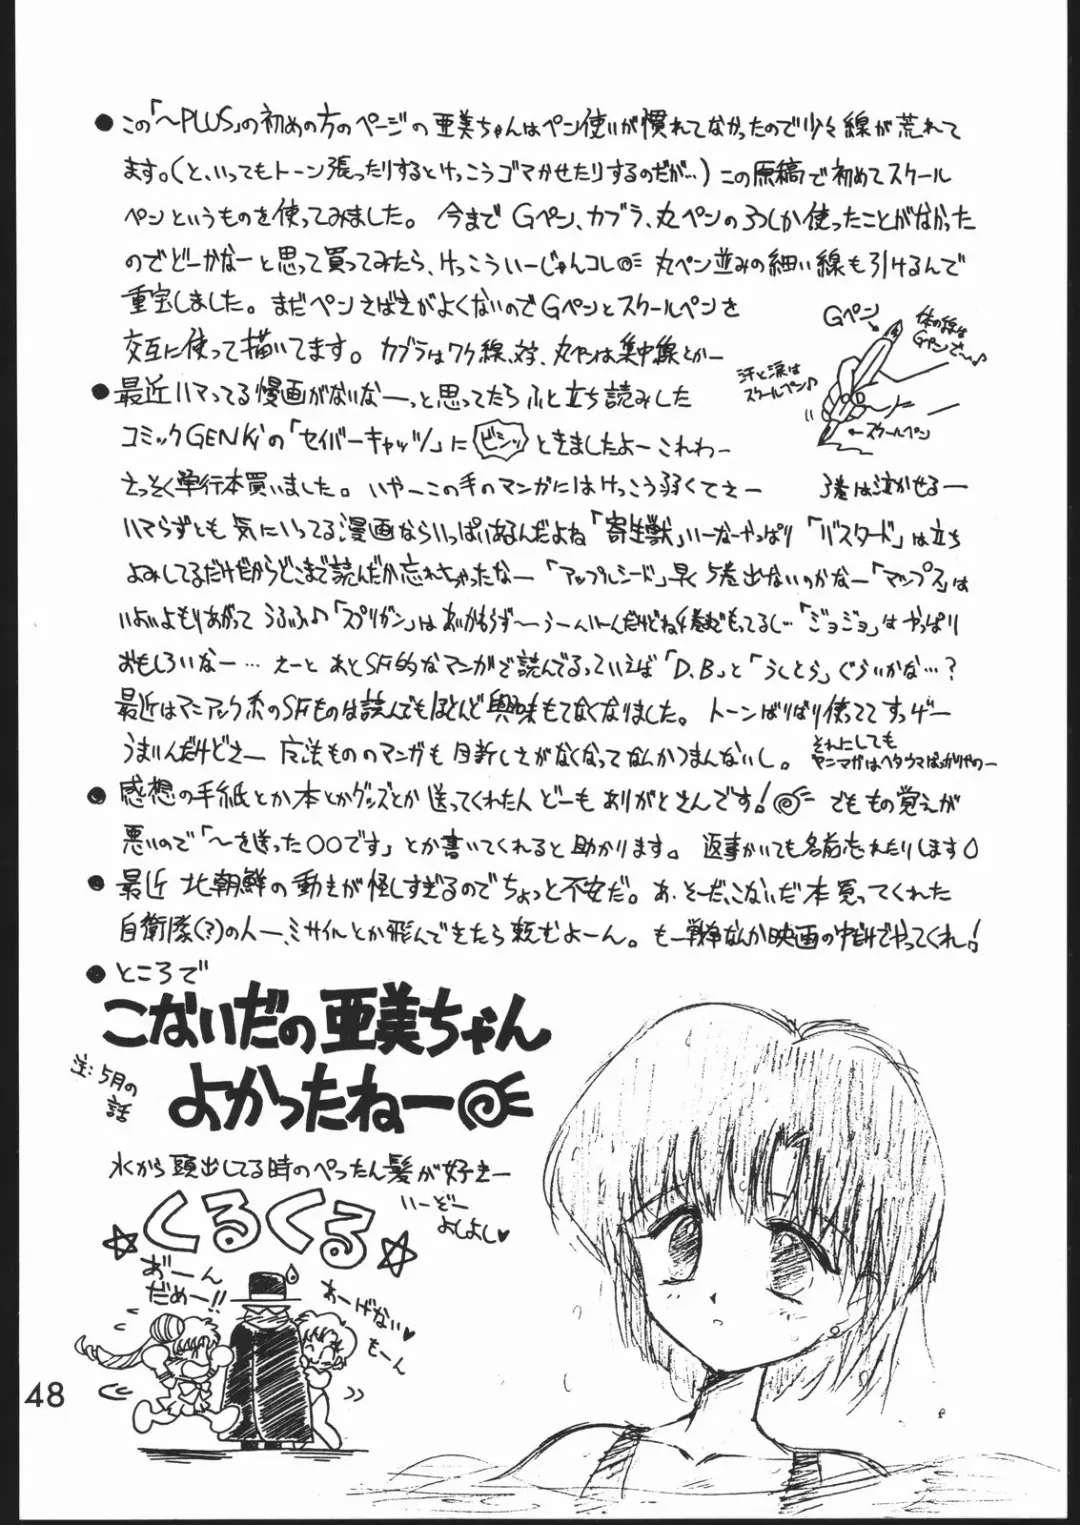 ●この「～PLUS」の初めの方のページの亜美ちゃんはペン使いが慣れてなかったので少々線が荒れて
ます。(と、いってもトーン張ったりするとけっこうゴマかせたりするのだが…)この原稿で初めてスクール
ペンというものを使ってみました。今までGペン、カブラ、丸ペンの3つしか使ったことがなかった
のでどーかなーと思って買ってみたら、けっこういーじゃんコレ 丸ペン並みの細い線も引けるんで
重宝しました。まだペンさばきがよくないのでGペンとスクールペンを
交互に使って描いてます。カブラはワク線、丸ペンは集中線とかー
Gペン
体の線はGペンで～♪
汗と涙はスクールペン♪
←スクールペン
●最近ハマってる漫画がないなーっと思ってたらふと立ち読みした
コミックGENKiの「セイバーキャッツ」に ビシッ ときましたよーこれわー
さっそく単行本買いました。いやーこの手のマンガにはけっこう弱くてさー 3巻は泣かせるー
ハマらずとも気にいってる漫画ならいっぱいあるんだよね「寄生獣」いーなーやっぱり「バスタード」は立ち
よみしてるだけだからどこまで読んだか忘れちゃったなー「アップルシード」早く5巻出ないのかなー「マップス」は
いよいよもりあがって うふふ♪「スプリガン」はあいかわらず～うーんいーんだけどね4巻までもってるし…「ジョジョ」はやっぱり
おもしろいなー…えーと あとSF的なマンガで読んでるっていえば「D.B」と「うしとら」ぐらいかな…?
最近はマニアック系のSFものは読んでもほとんど興味もてなくなりました。トーンばりばり使ってて すっげー
うまいんだけどさー 魔法もののマンガも目新しさがなくなってなんかつまんないし。
それにしても
ヤンマガはヘタウマばっかりやのー
●感想の手紙とか本とかグッズとか送ってくれた人 どーもありがとさんです! でももの覚えが
悪いので「～を送った○○です」とか書いてくれると助かります。返事かいても名前忘れたりします
●最近 北朝鮮の動きが怪しすぎるのでちょっと不安だ。あ、そーだ、こないだ本買ってくれた
自衛隊(?)の人ー、ミサイルとか飛んできたら頼むよーん。もー戦争なんか映画の中だけでやってくれ!
●ところで
こないだの亜美ちゃん
よかったねー
注:5月の話
水から頭出してる時のぺったん髪が好きー
いーぞー
よしよし♥
☆くるくる☆
あ゛ーん
だめー!!
あーげない♥
もーん
48